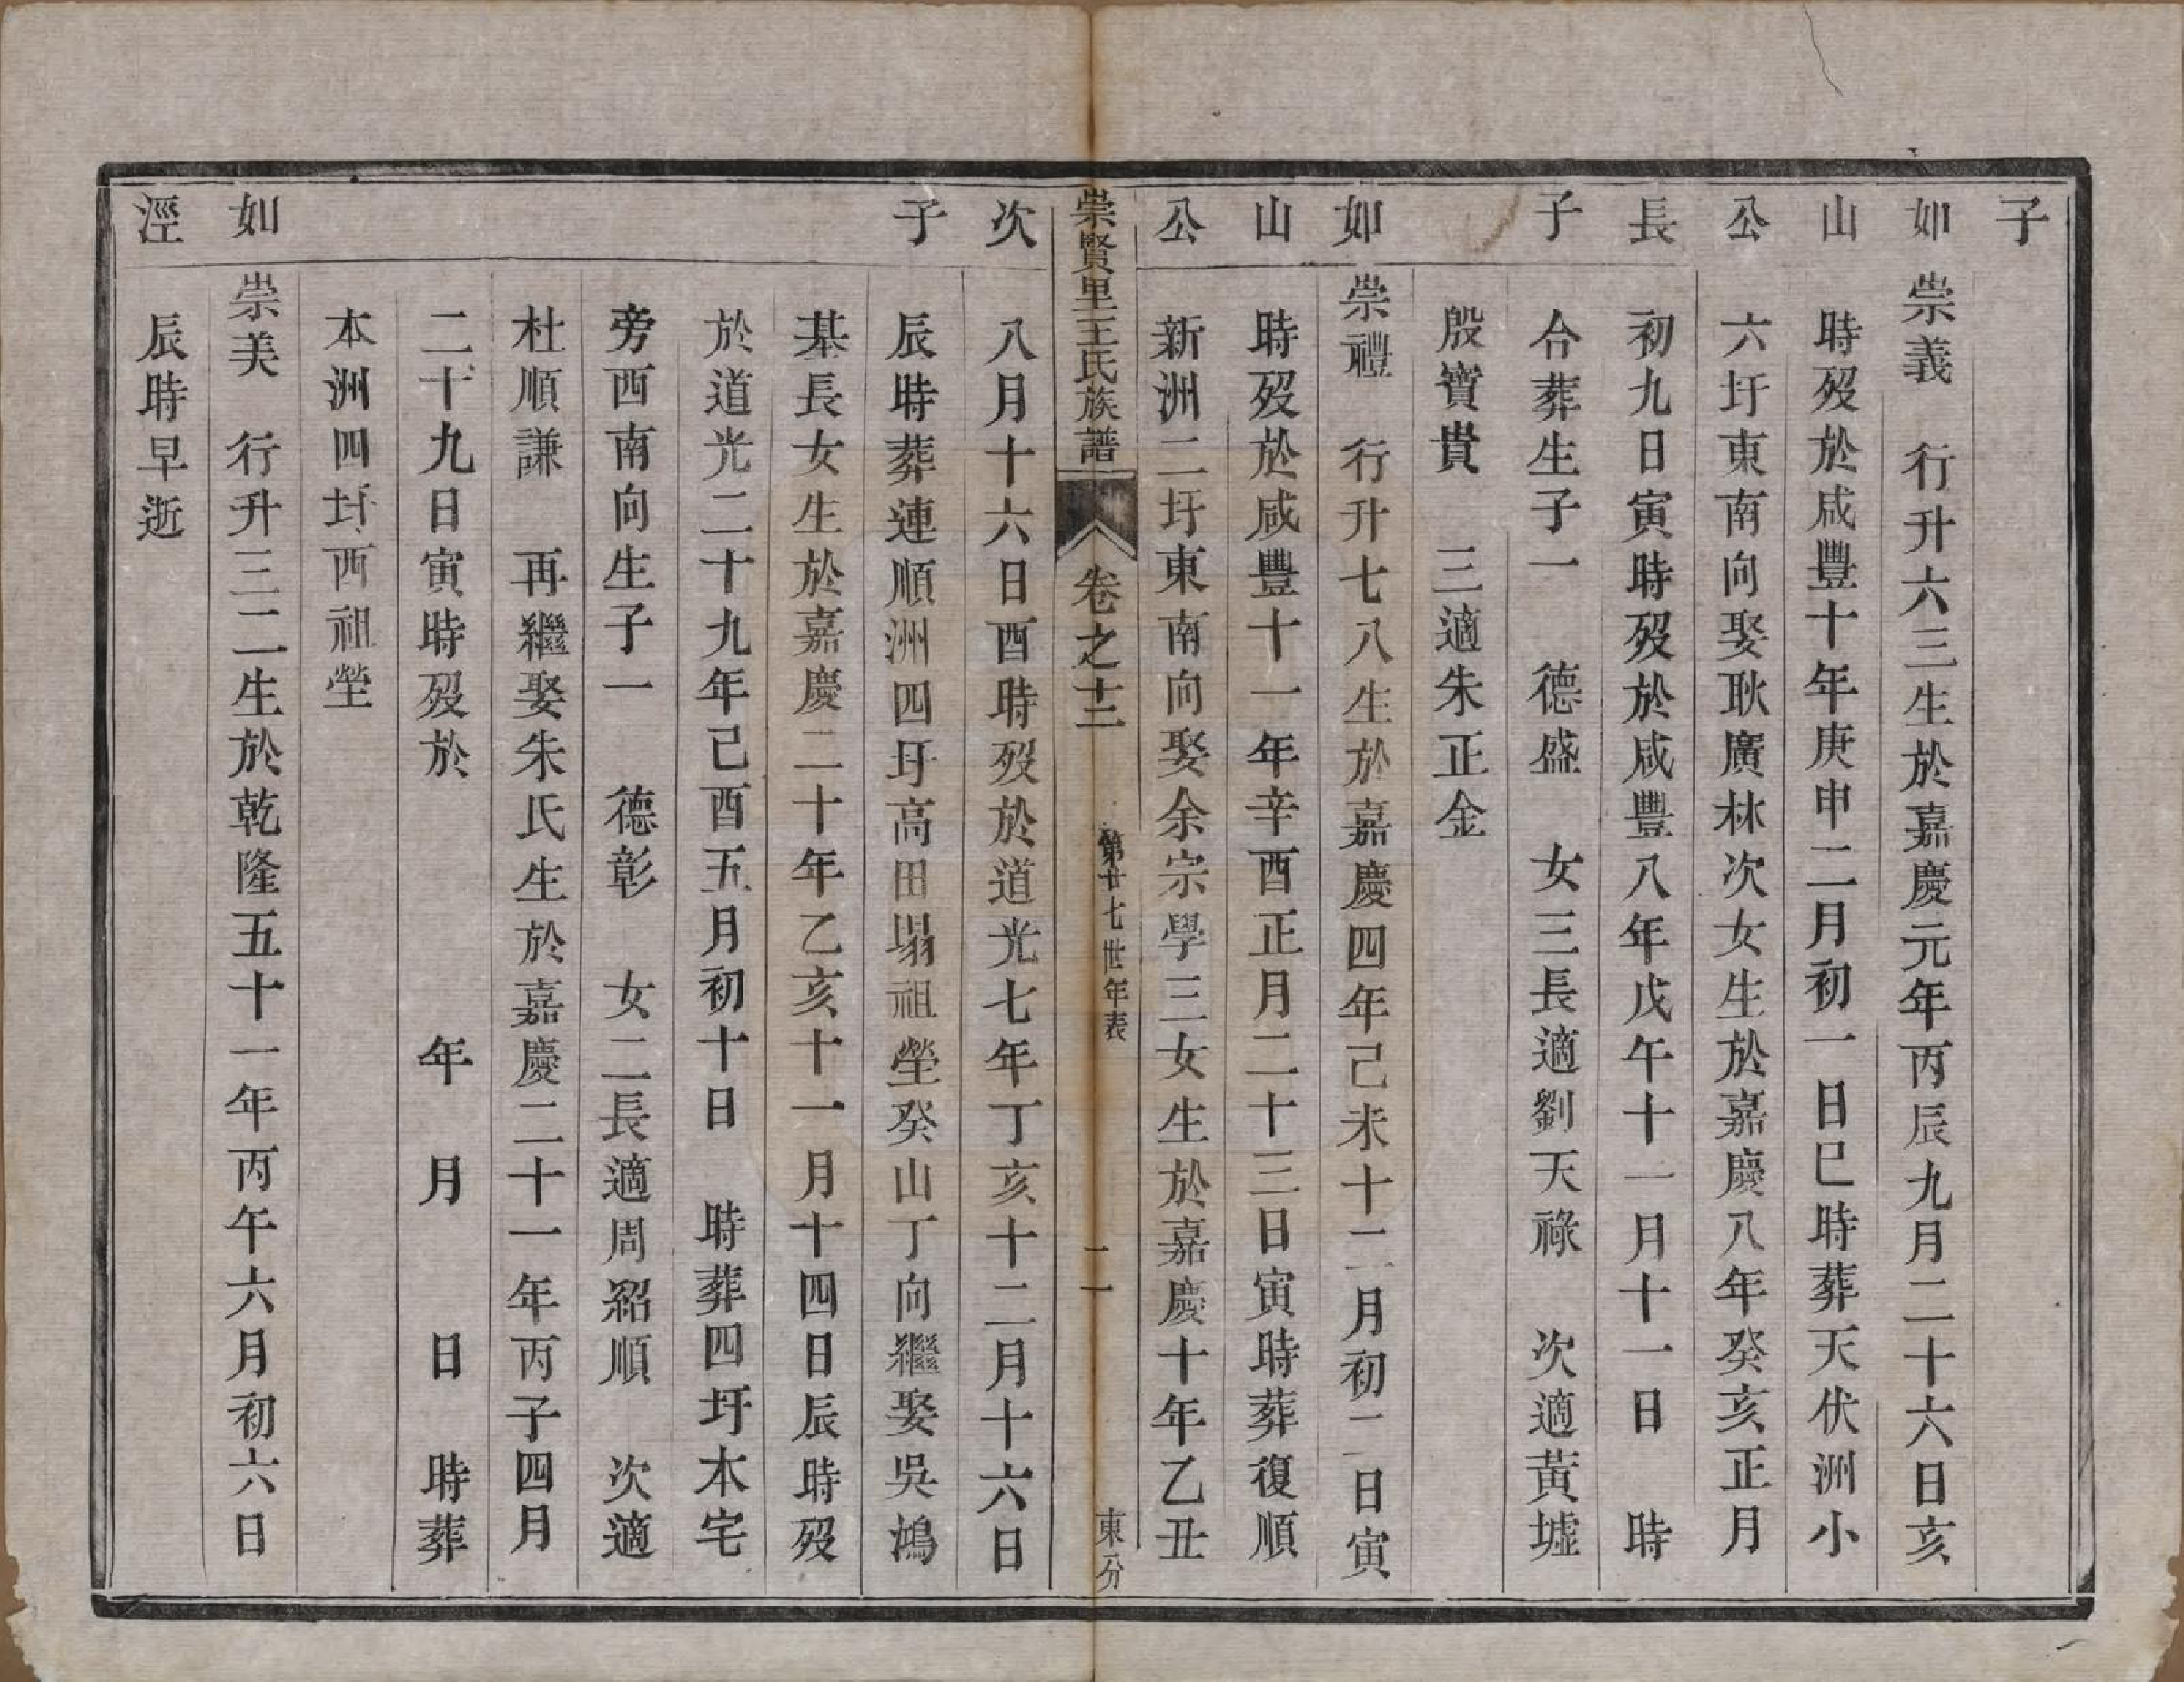 子
如 崇義 行升六三生於嘉慶元年丙辰九月二十六日亥
山 時歿於咸豐十年庚申二月初一日巳時葬天伏洲小
公 六圩東南向娶耿廣林次女生於嘉慶八年癸亥正月
長 初九日寅時歿於咸豐八年戊午十一月十一日 時
子 合葬生子一 德盛 女三長適劉天祿 次適黃墟
殷寶貴 三適朱正金
如 崇禮 行升七八生於嘉慶四年己未十二月初二日寅
山 時歿於咸豐十一年辛酉正月二十三日寅時葬復順
公 新洲二圩東南向娶余宗學三女生於嘉慶十年乙丑
崇賢里王氏族譜 卷之十三 第廿七世年表 二 東分
次 八月十六日酉時歿於道光七年丁亥十二月十六日
子 辰時葬連順洲四圩高田塌祖塋癸山丁向繼娶吳鴻
基長女生於嘉慶二十年乙亥十一月十四日辰時歿
於道光二十九年己酉五月初十日 時葬四圩本宅
旁西南向生子一 德彰 女二長適周紹順 次適
杜順謙 再繼娶朱氏生於嘉慶二十一年丙子四月
二十九日寅時歿於 年 月 日 時葬
本洲四圩西祖塋
如 崇美 行升三二生於乾隆五十一年丙午六月初六日
涇 辰時早逝